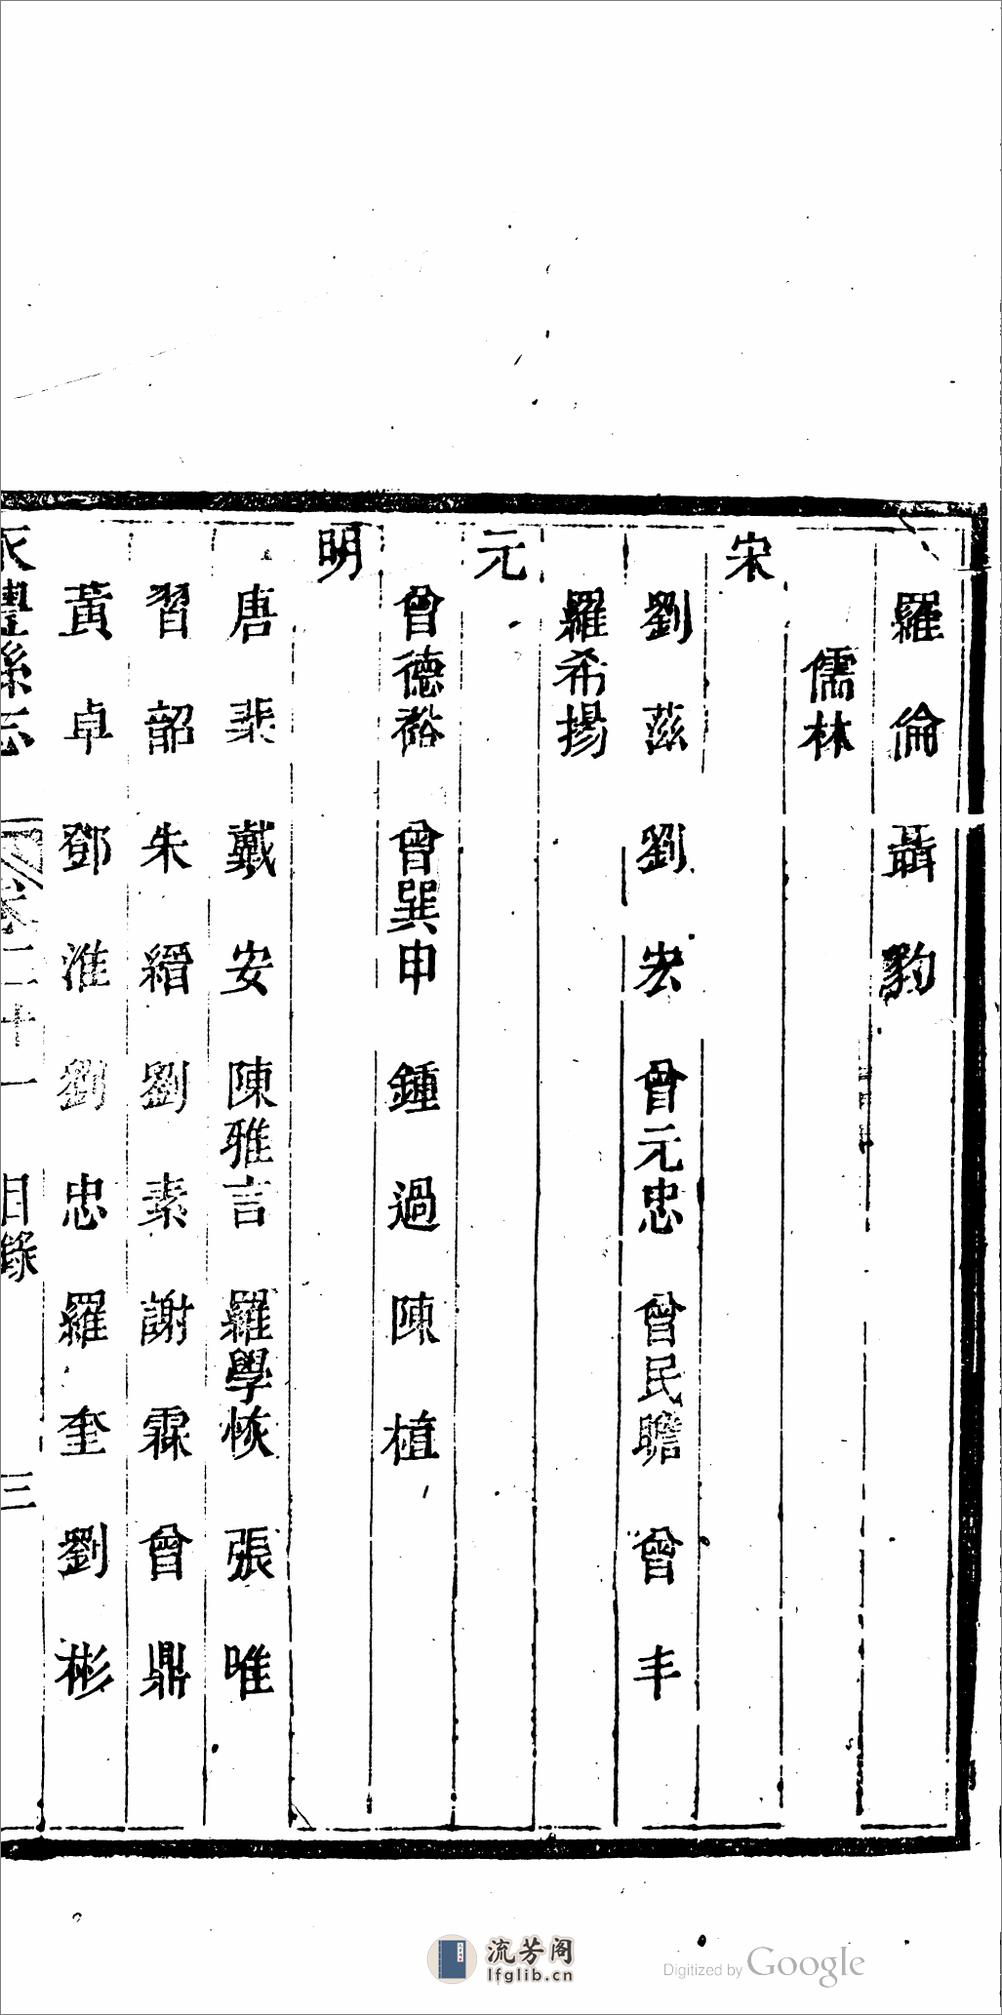 羅倫 聶豹
儒林
宋
劉茲 劉宏 曾元忠 曾民瞻 曾丰
羅希揚
元
曾德裕 曾巽申 鍾過 陳植
明
唐棐 戴安 陳雅言 羅學恢 張唯
習韶 朱縉 劉素 謝霖 曾鼎
黃卓 鄧淮 劉忠 羅奎 劉彬
永豐縣志 卷二十一 目錄 三
流芳阁
lfglib.cn
Digitized by Google